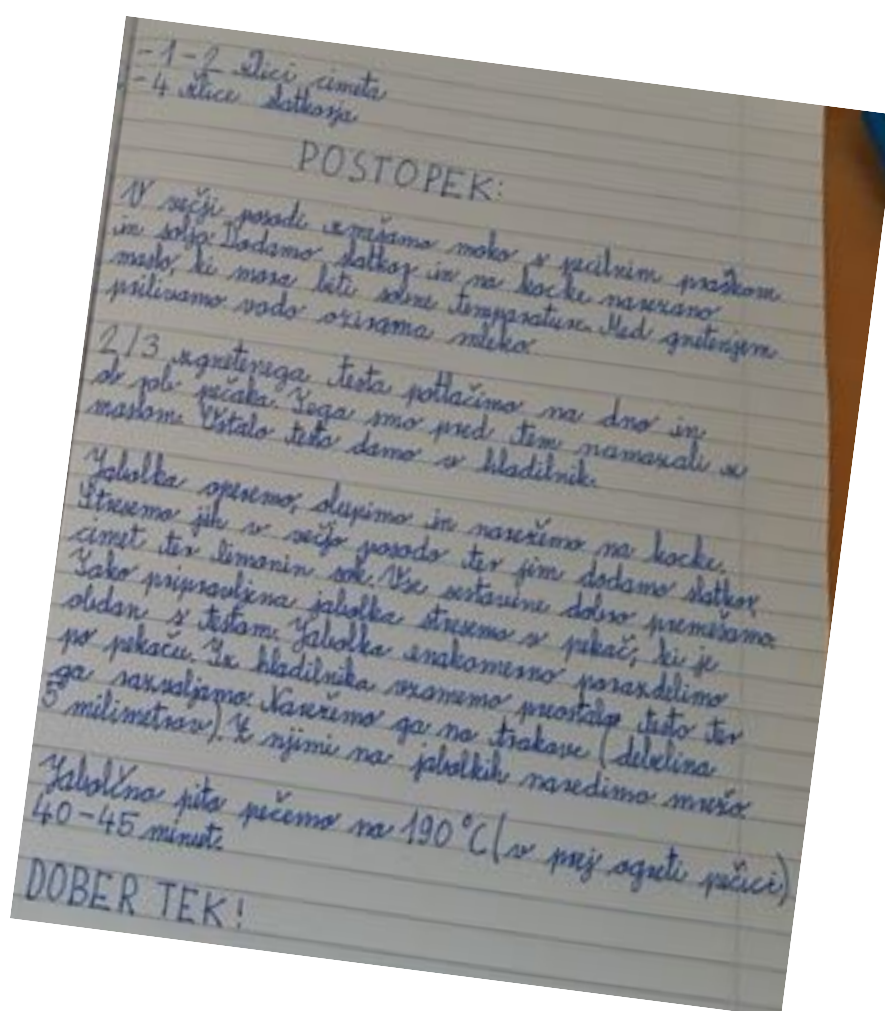 - 1 - 2 žlici cimeta
- 4 žlice slatkorja
POSTOPEK:
V večji posodi zmešamo moko s pecilnim praškom
in soljo. Dodamo slatkor in na kocke narezano
maslo, ki mora biti sobne temperature. Med gnetenjem
prilivamo vodo oziroma mleko.
2/3 zgnetenega testa potlačimo na dno in
ob rob pečaka. Tega smo pred tem namazali z
maslom. Ostalo testo damo v hladilnik.
Jabolka operemo, olupimo in narežemo na kocke.
Stresemo jih v večjo posodo ter jim dodamo slatkor,
cimet ter limonin sok. Vse sestavine dobro premešamo.
Tako pripravljena jabolka stresemo v pekač, ki je
obdan s testom. Jabolka enakomerno porazdelimo
po pekaču. Iz hladilnika vzamemo preostalo testo ter
ga razvaljamo. Narežemo ga na trakove (debelina
5 milimetrov). Z njimi na jabolkih naredimo mrežo.
Jabolčno pito pečemo na 190°C (v prej ogreti pečici)
40-45 minut.
DOBER TEK!